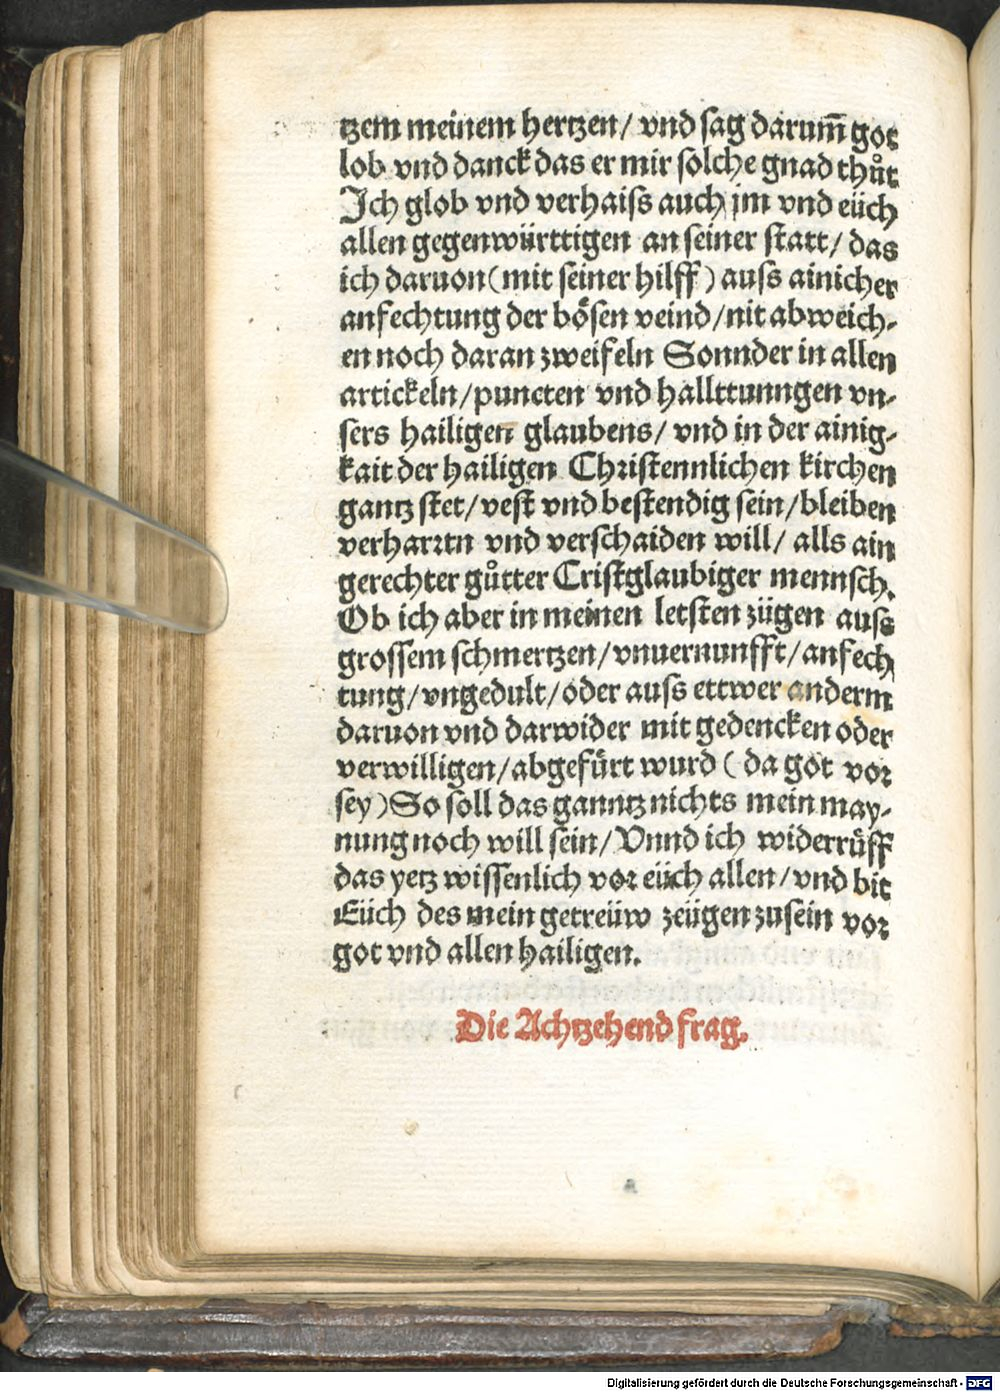 tzem meinem hertzen/ vnd sag darum̄ got
lob vnd danck das er mir solche gnad thůt
Ich glob vnd verhaiss auch jm vnd eüch
allen gegenwürttigen an seiner statt/ das
ich daruon (mit seiner hilff) auss ainicher
anfechtung der bösen veind/ nit abweich-
en noch daran zweifeln Sonnder in allen
artickeln/ puncten vnd hallttunngen vn-
sers hailigen glaubens/ vnd in der ainig-
kait der hailigen Christennlichen kirchen
gantz stet/ vest vnd bestendig sein/ bleiben
verharrtn vnd verschaiden will/ alls ain
gerechter gůtter Cristglaubiger mennsch.
Ob ich aber in meinen letsten zügen auss
grossem schmertzen/ vnuernunfft/ anfech
tung/ vngedult/ oder auss ettwer anderm
daruon vnd darwider mit gedencken oder
verwilligen/ abgefürt wurd (da got vor
sey) So soll das ganntz nichts mein may-
nung noch will sein/ Vnnd ich widerrůff
das yetz wissenlich vor eüch allen/ vnd bit
Eüch des mein getreüw zeügen zusein vor
got vnd allen hailigen.
Die Achtzehend frag.
Digitalisierung gefördert durch die Deutsche Forschungsgemeinschaft - DFG